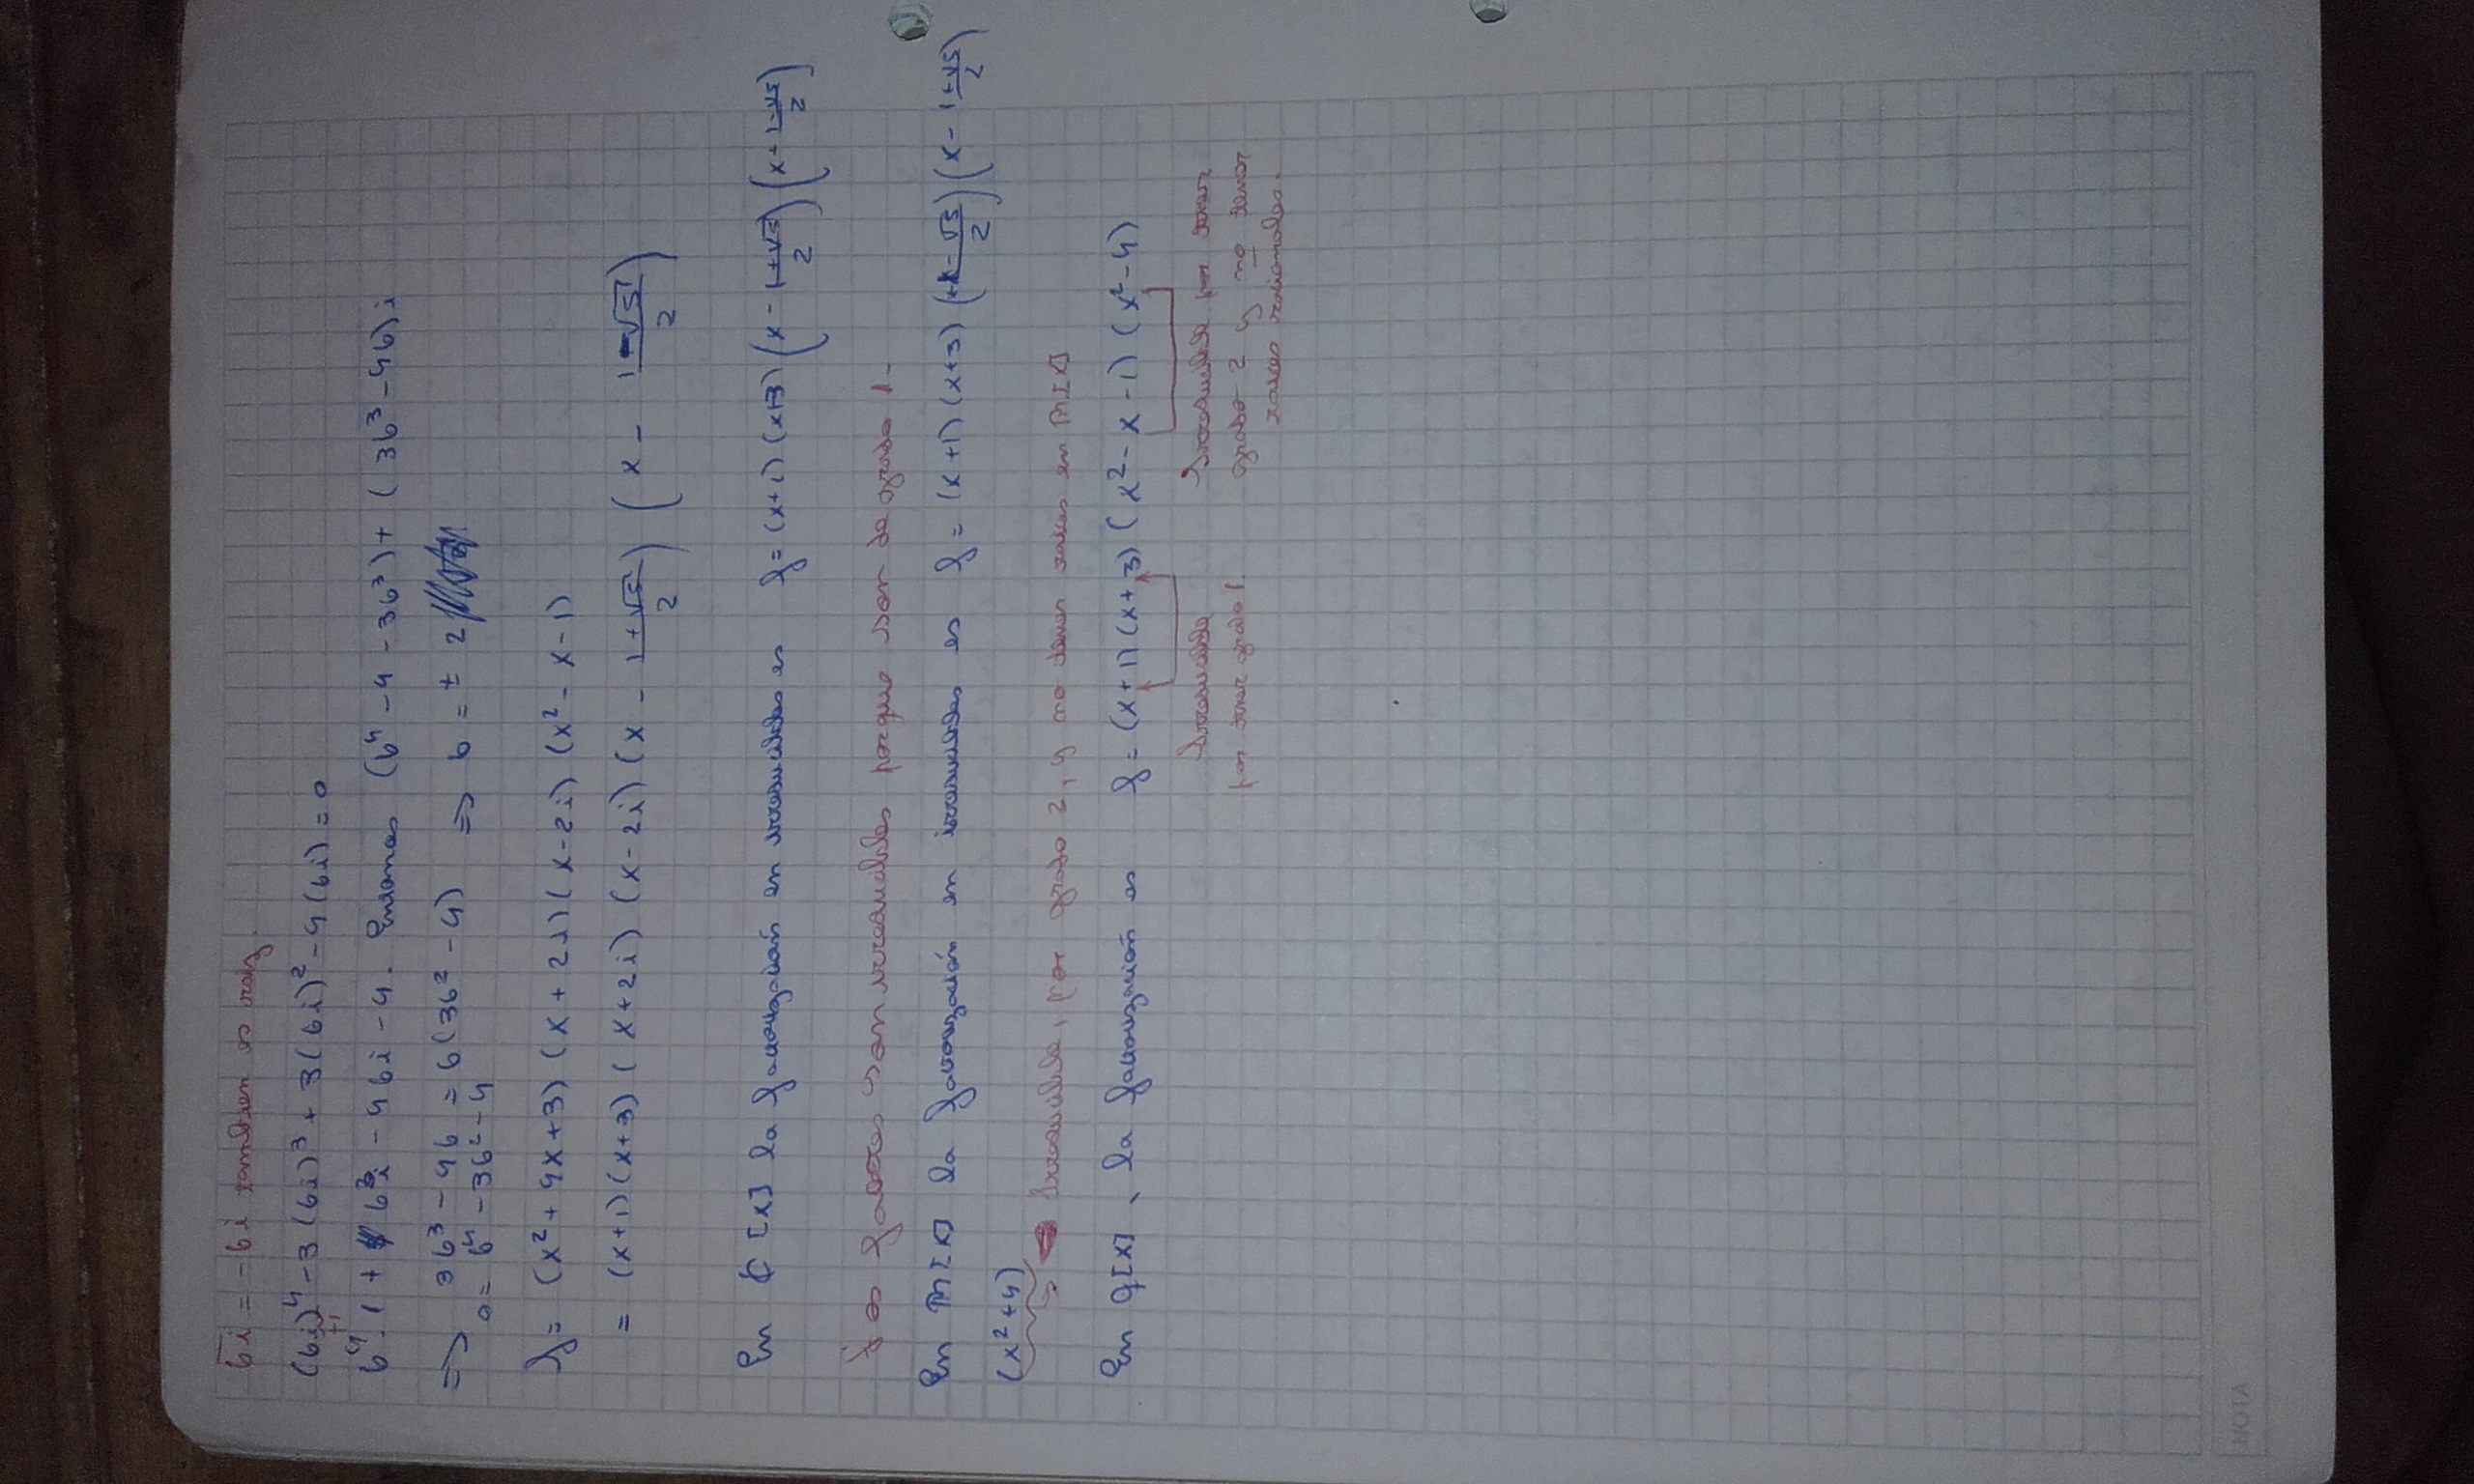 b̄i = -bi tambien es raiz.
(bi)⁴ - 3(bi)³ + 3(bi)² - 4(bi) = 0
+1
b⁴·1 + b³i - 4bi - 4. Entonces (b⁴ - 4 - 3b³) + (3b³ - 4b)i
=> 3b³ - 4b = b(3b² - 4) => b = ± 2
0 = b⁴ - 3b² - 4
f = (x² + 4x + 3) (x + 2i) (x - 2i) (x² - x - 1)
= (x+1) (x+3) (x+2i) (x-2i) (x - (1+√5)/2) (x - (1-√5)/2)
En ℂ[x] la factorización en irreducibles es f = (x+1) (x+3) (x - (1+√5)/2) (x + (1-√5)/2)
Los factores son irreducibles porque son de grado 1.
En ℝ[x] la factorización en irreducibles es f = (x+1) (x+3) ( - √5/2) (x - (1+√5)/2)
(x² + 4)
-> Irreducible, por grado 2, y no tener raices en ℝ[x]
En Q[x], la factorización es f = (x+1) (x+3) (x² - x - 1) (x² - 4)
Irreducible
por tener grado 1.
Irreducible por tener
grado 2 y no tener
raices racionales.
NOTA